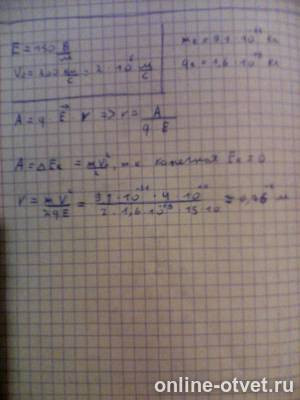 E = 150 В/м
V₀ = 200 км/с = 2 · 10 м/с
mₑ = 9,1 · 10 кг
qₑ = 1,6 · 10 Кл
A = q E r => r = A / q · E
A = ΔEк = mV²/2, т.к. конечная Eк = 0
r = mV²/2qE = 9,1 · 10⁻³¹ · 4 · 10 / 2 · 1,6 · 10⁻¹⁹ · 15 · 10 ≈ 0,76 м
online-otvet.ru